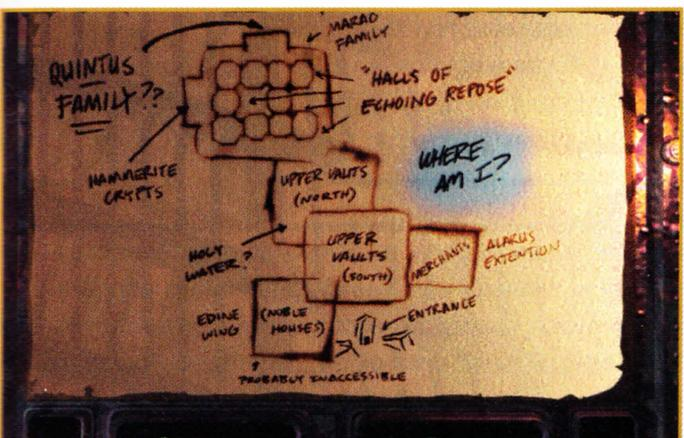 MARAO
FAMILY
QUINTUS
FAMILY??
"HALLS OF
ECHOING REPOSE"
HAMMERITE
CRYPTS
WHERE
AM I?
UPPER VAULTS
(NORTH)
HOLY
WATER?
UPPER
VAULTS
(SOUTH)
MERCHANTS
ALARUS
EXTENTION
EDINE
WING
(NOBLE
HOUSES)
ENTRANCE
PROBABLY INACCESSIBLE